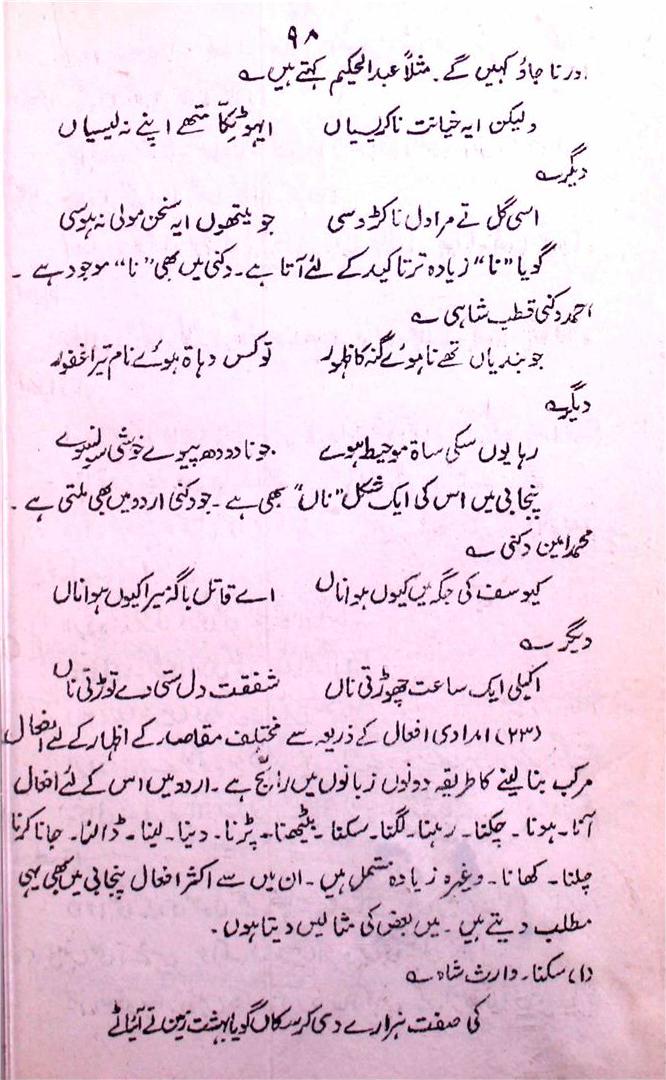 ۹۸
اور نا جاؤ کہیں گے۔ مثلاً عبدالحکیم کہتے ہیں ؎
ولیکن ایہ خیانت نا کریسیاں ایہو ٹکّا متھے اپنے نہ لیسیاں
دیگر ؎
اسی گل تے مرا دل نا کڑوسی جو یتھوں ایہ سخن مولی نہ ہوسی
گویا "نا" زیادہ تر تاکید کے لئے آتا ہے۔ دکنی میں بھی "نا" موجود ہے۔
احمد دکنی قطب شاہی ؎
جو بندیاں تھے نا ہوئے گنہ کا ظہور تو کس دہاۃ ہوئے نام تیرا غفور
دیگر ؎
رہا یوں سکی ساۃ موحیط ہوے جو نا دودھ پیوے خوشی سو
پنجابی میں اس کی ایک شکل "ناں" بھی ہے۔ جو دکنی اردو میں بھی ملتی ہے۔
محمد امین دکنی ؎
کیوسف کی جگہ میں کیوں ہوا ناں اے قاتل باگنہ میرا کیوں ہوا ناں
دیگر ؎
اکیلی ایک ساعت چھوڑتی ناں شفقت دل ستی دے توڑتی ناں
(۲۳) امدادی افعال کے ذریعہ سے مختلف مقاصد کے اظہار کے لئے افعال
مرکب بنا لینے کا طریقہ دونوں زبانوں میں رائج ہے۔ اردو میں اس کے لئے افعال
آنا۔ ہونا۔ چکنا۔ رہنا۔ لگنا۔ سکنا۔ بیٹھنا۔ پڑنا۔ دینا۔ لینا۔ ڈالنا۔ جانا کرنا
چلنا۔ کھانا۔ وغیرہ زیادہ مستعمل ہیں۔ ان میں سے اکثر افعال پنجابی میں بھی یہی
مطلب دیتے ہیں۔ میں بعض کی مثالیں دیتا ہوں۔
(۱) سکنا۔ وارث شاہ ؎
کی صفت ہزارے دی کر سکاں گویا بہشت زمین تے آیائے